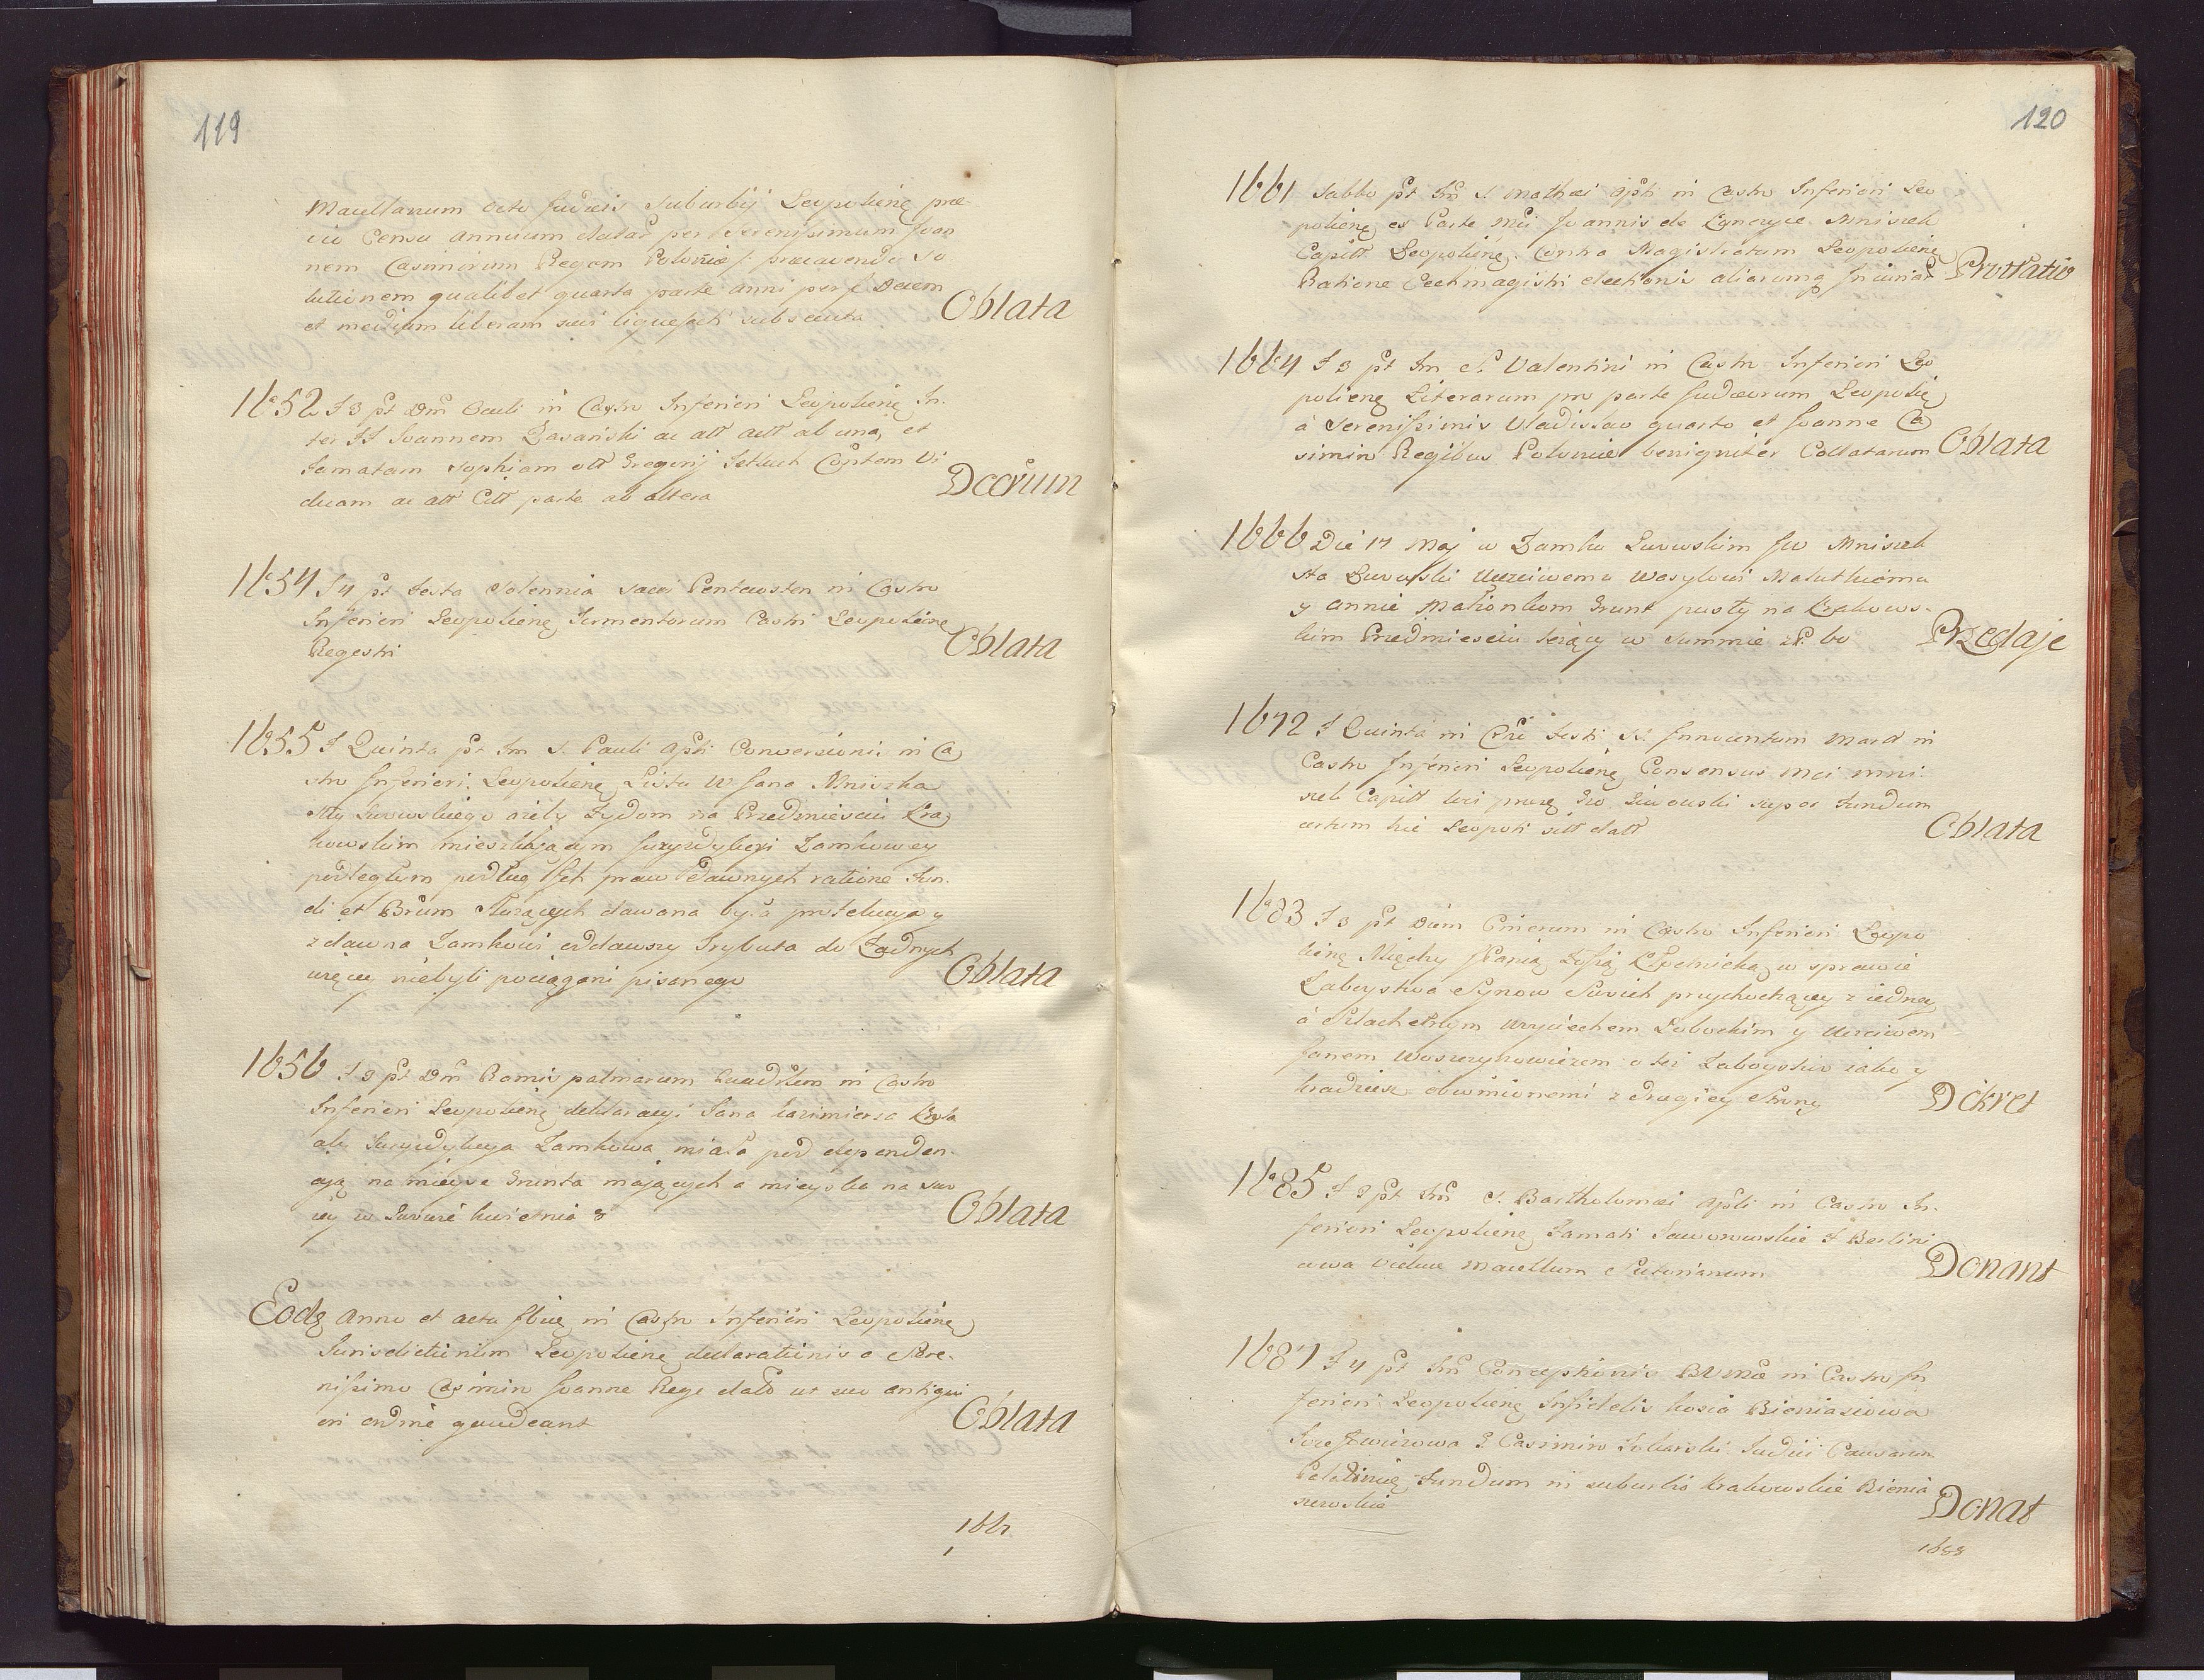 119
Macellarum octo Judæis Suburbij Leopolieng præ
vio Censu annuum datar per Serenissimum Joan
nem Casimirum Regem Poloniæ præcavendo so
lutionem qualibet quarta parte anni per f Decem
et medium liberam sevi liquefacti subsecuta Oblata
1652 F 3 pt Dm Oculi in Castro Inferiori Leopolieng In.
ter FF Joannem Zasański ac att actt ab una, et
Famatam Sophiam ott Gregorij Coptem Vi
duam ac att Citt parte ab altera Decrum
1654 F 4 pt Festa Solennia Sacri Pentecostes in Castro
Inferiori Leopolieng Iermentorum Castri Leopolieng
Regestri Oblata
1655 F Quinta pt Fm S. Pauli Apti Conversionis in Ca
stro Inferiori Leopolieng Listu W Jana Mniszka
Stty Lwowskiego ażeby Żydom na Przedmieściu Kra
kowskim mieszkającym Juryzdykcyi Zamkowey
podległym podług Ich praw dawnych ratione Fun.
di et Brum Służących dawana była protekcya y
zdawna Zamkowi oddawszy Trybuta do Żadnych
więcey niebyli pociągani pisanego Oblata
1656 F 3 pt Dm Ramis palmarum Quadrlem in Castro
Inferiori Leopolieng deklaracyi Jana Kazimierza Krola
aby Juryzdykcya Zamkowa miała pod dependen.
cyą na mieysce Grunta mających a mieyska na swo
iey w Lwowie kwietnia 8 Oblata
Eodg Anno et actu fbrig in Castro Inferiori Leopolieng
Jurisdictionum Leopolieng declarationis a Sere.
nissimo Casimiro Joanne Rege dato ut suo antiqui
ori ordine gaudeant Oblata
1661
120
1661 Sabbo pt Fm S. Mathæi Apti in Castro Inferiori Leo
polieng ex Parte Mci Joannis de Kończyce Mniszek
Capitt Leopolieng Contra Magistratum Leopolieng
Ratione Cechmagistri electionis aliarumq Iniuriar Prottatio
1664 F 3 pt Fm S. Valentini in Castro Inferiori Leo
polieng Literarum pro parte Judæorum Leopolieg
á Serenissimis Vladislao quarto et Joanne Ca
simiro Regibus Poloniæ benigniter Collatarum Oblata
1666 Die 17 Maj w Zamku Lwowskim Jw Mniszek
Sta Lwowski Uczciwemu Wasylowi Malutkiemu
y Annie Małżonkom Grunt pusty na Krakows.
kim Przedmieściu leżący w summie zł. 60 Przedaje
1672 F Quinta in Cr͠o Festi SS. Innocentum Mard in
Castro Inferiori Leopolieng Consensus Mci Mni.
szek Capitt loci super Fundum
certum hic Leopoli sitt datt Oblata
1683 F 3 pt Diem Cinerum in Castro Inferiori Leopo
lieng Między Panią Zofią w sprawie
Zaboystwa Synow Swoich przychodzącey z iedney
á Szlachetnym Woyciechem Łobockim y Uczciwem
Janem Woszczynowiczem o też Zaboystwo iako y
kradzież obwinionemi z drugiey strony Dekret
1685 F 2 pt Fm S. Bartholomæi Apsti in Castro In.
feriori Leopolieng Famati Jaworowskie F Berlini
owa Viduæ Macellum Sutorianum Donant
1687 F 4 pt Fm Conceptionis BVMæ in Castro In
feriori Leopolieng Infidelis Kosia Bieniasiowa
G Casimiro Judici Causarum
Palatinieg Fundum in suburbio Krakowskie Bienia
szowskie Donat
1688